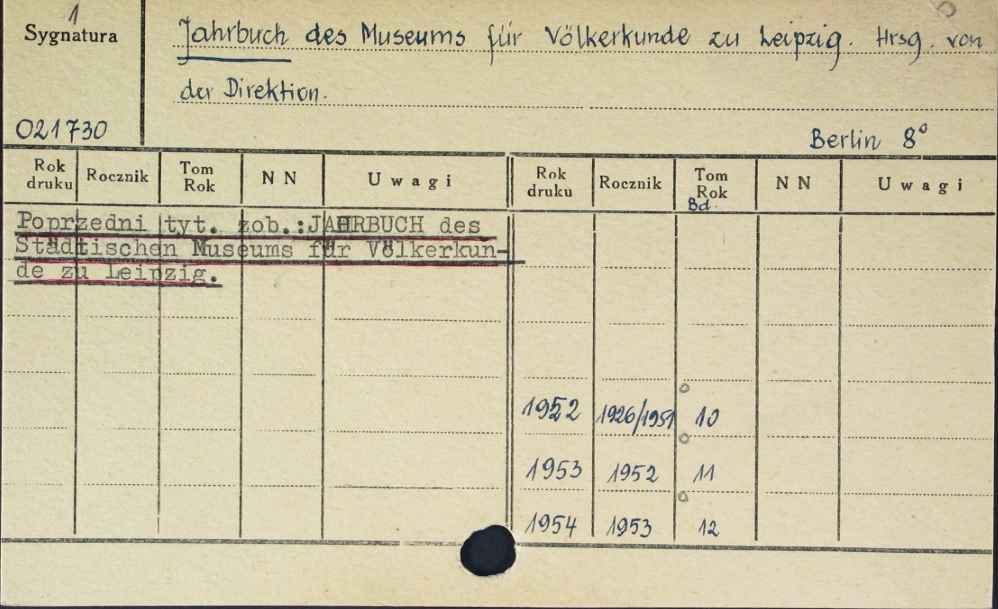 1
Sygnatura
Jahrbuch des Museums für Völkerkunde zu Leipzig. Hrsg. von
der Direktion.
021730
Berlin 8°
Rok druku Rocznik Tom Rok N N Uwagi Rok druku Rocznik Tom Rok N N Uwagi
Bd.
Poprzedni tyt. zob.: JAHRBUCH des
Städtischen Museums für Völkerkun-
de zu Leipzig.
1952 1926/1951 10
1953 1952 11
1954 1953 12